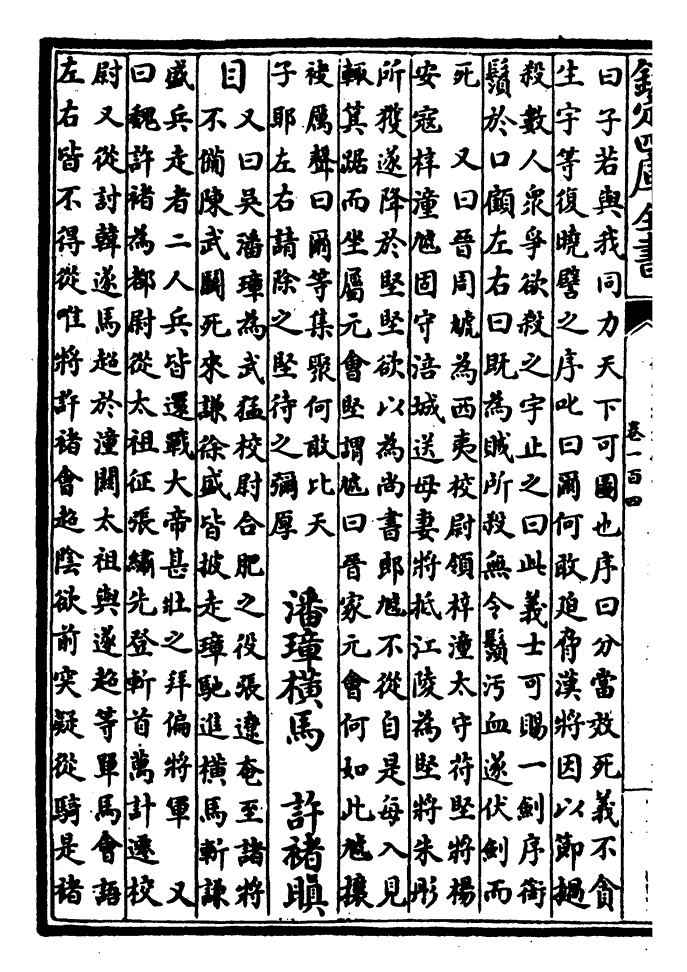 欽定四庫全書
卷一百四
曰子若與我同力天下可圖也序曰分當效死義不貪
生宇等復曉譬之序叱曰爾何敢廹脅漢將因以節撾
殺數人衆爭欲殺之宇止之曰此義士可賜一劍序銜
鬚於口顧左右曰既為賊所殺無令鬚汚血遂伏劍而
死 又曰晉周虓為西夷校尉領梓潼太守苻堅將楊
安寇梓潼虓固守涪城送母妻將抵江陵為堅將朱彤
所獲遂降於堅堅欲以為尚書郎虓不從自是每入見
輒箕踞而坐屬元會堅謂虓曰晉家元會何如此虓攘
袂厲聲曰爾等集聚何敢比天
子耶左右請除之堅待之彌厚
潘璋橫馬 許褚瞋
目
又曰吳潘璋為武猛校尉合肥之役張遼奄至諸將
不備陳武鬬死來謙徐盛皆披走璋馳進橫馬斬謙
盛兵走者二人兵皆還戰大帝甚壯之拜偏將軍 又
曰魏許褚為都尉從太祖征張繡先登斬首萬計遷校
尉又從討韓遂馬超於潼關太祖與遂超等單馬會語
左右皆不得從唯將許褚會超陰欲前突疑從騎是褚